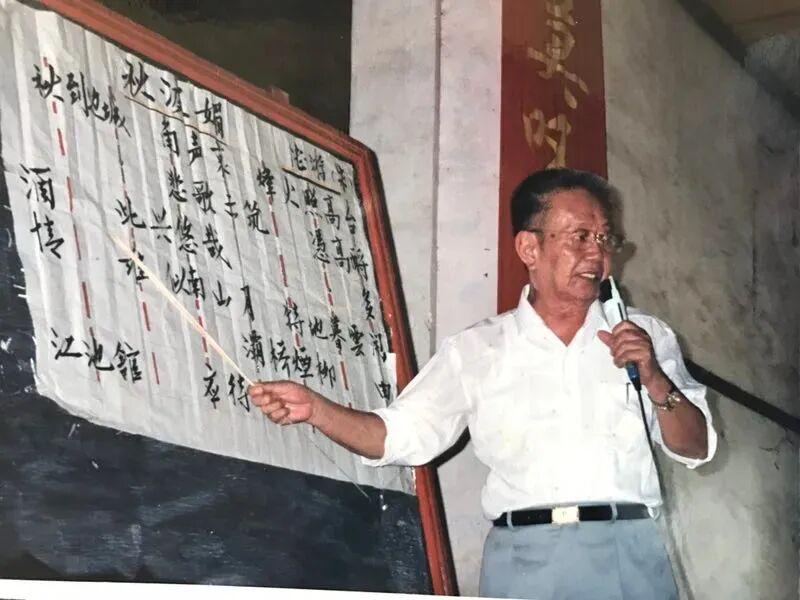 秋波媚 陆游 宋
秋到边城 角声哀 烽火照高台
悲歌击筑 凭高酹
酒 此兴悠哉 多
情谁似南山月 特地暮雲開
灞桥煙柳 曲
江池館 应待